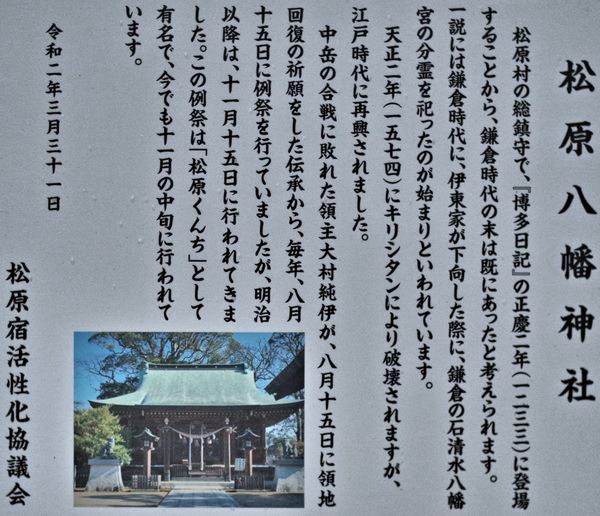 松原八幡神社
松原村の総鎮守で、『博多日記』の正慶二年（一二三三）に登場
することから、鎌倉時代の末は既にあったと考えられます。
一説には鎌倉時代に、伊東家が下向した際に、鎌倉の石清水八幡
宮の分霊を祀ったのが始まりといわれています。
天正二年（一五七四）にキリシタンにより破壊されますが、
江戸時代に再興されました。
中岳の合戦に敗れた領主大村純伊が、八月十五日に領地
回復の祈願をした伝承から、毎年、八月
十五日に例祭を行っていましたが、明治
以降は、十一月十五日に行われてきま
した。この例祭は「松原くんち」として
有名で、今でも十一月の中旬に行われて
います。
令和二年三月三十一日
松原宿活性化協議会